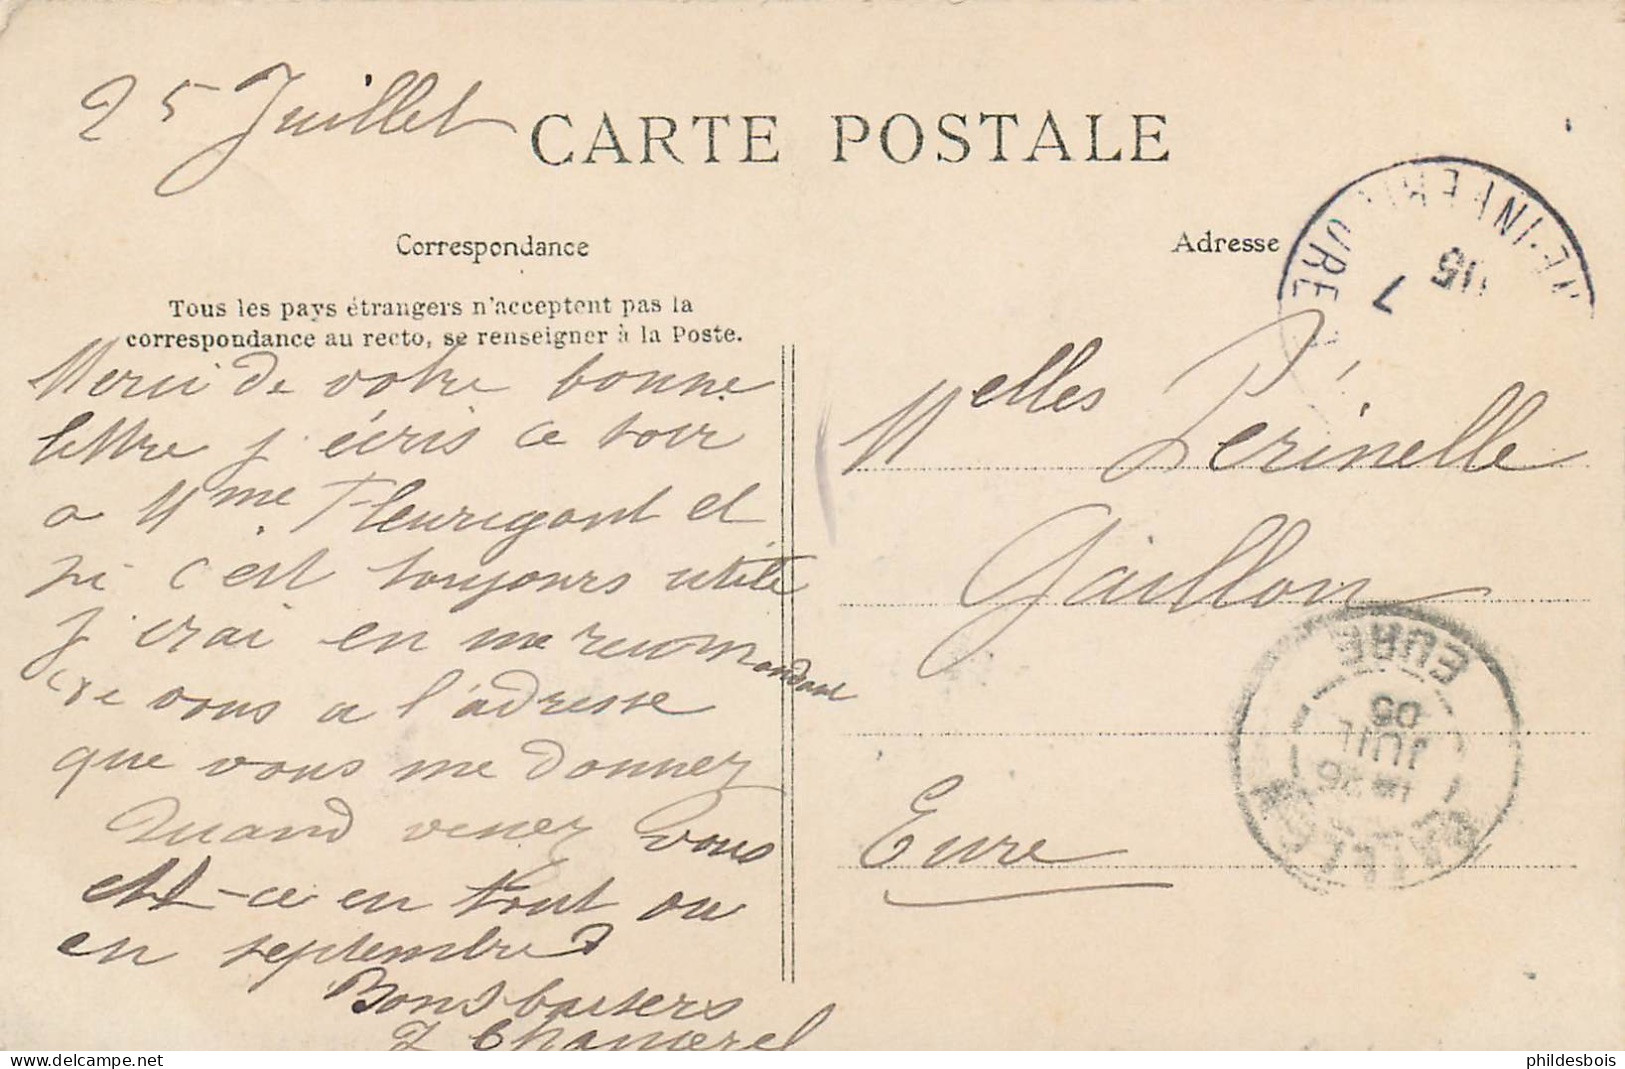 25 Juillet
CARTE POSTALE
Correspondance
Adresse
Tous les pays étrangers n'acceptent pas la
correspondance au recto, se renseigner à la Poste.
Merci de votre bonne
lettre j'écris ce soir
a Mme Fleurigant et
si c'est toujours utile
j'irai en me recommandant
de vous a l'adresse
que vous me donnez
Quand venez vous
est-ce en tout ou
en septembre?
Bons baisers
Melles Perinelle
Gaillon
Eure
7
05
EURE
26
JUIL
05
phildesbois